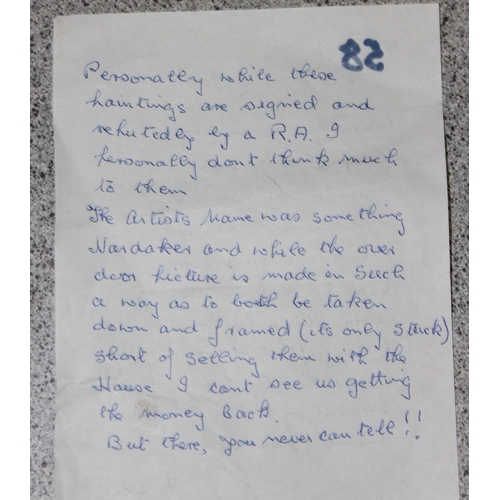 82
Personally while these
paintings are signed and
reputedly by a R.A. I
personally dont think much
to them
The Artists Name was something
Nardaker and while the over
door picture is made in such
a way as to both be taken
down and framed (its only stuck)
short of selling them with the
House I cant see us getting
the money back.
But there, you never can tell!!